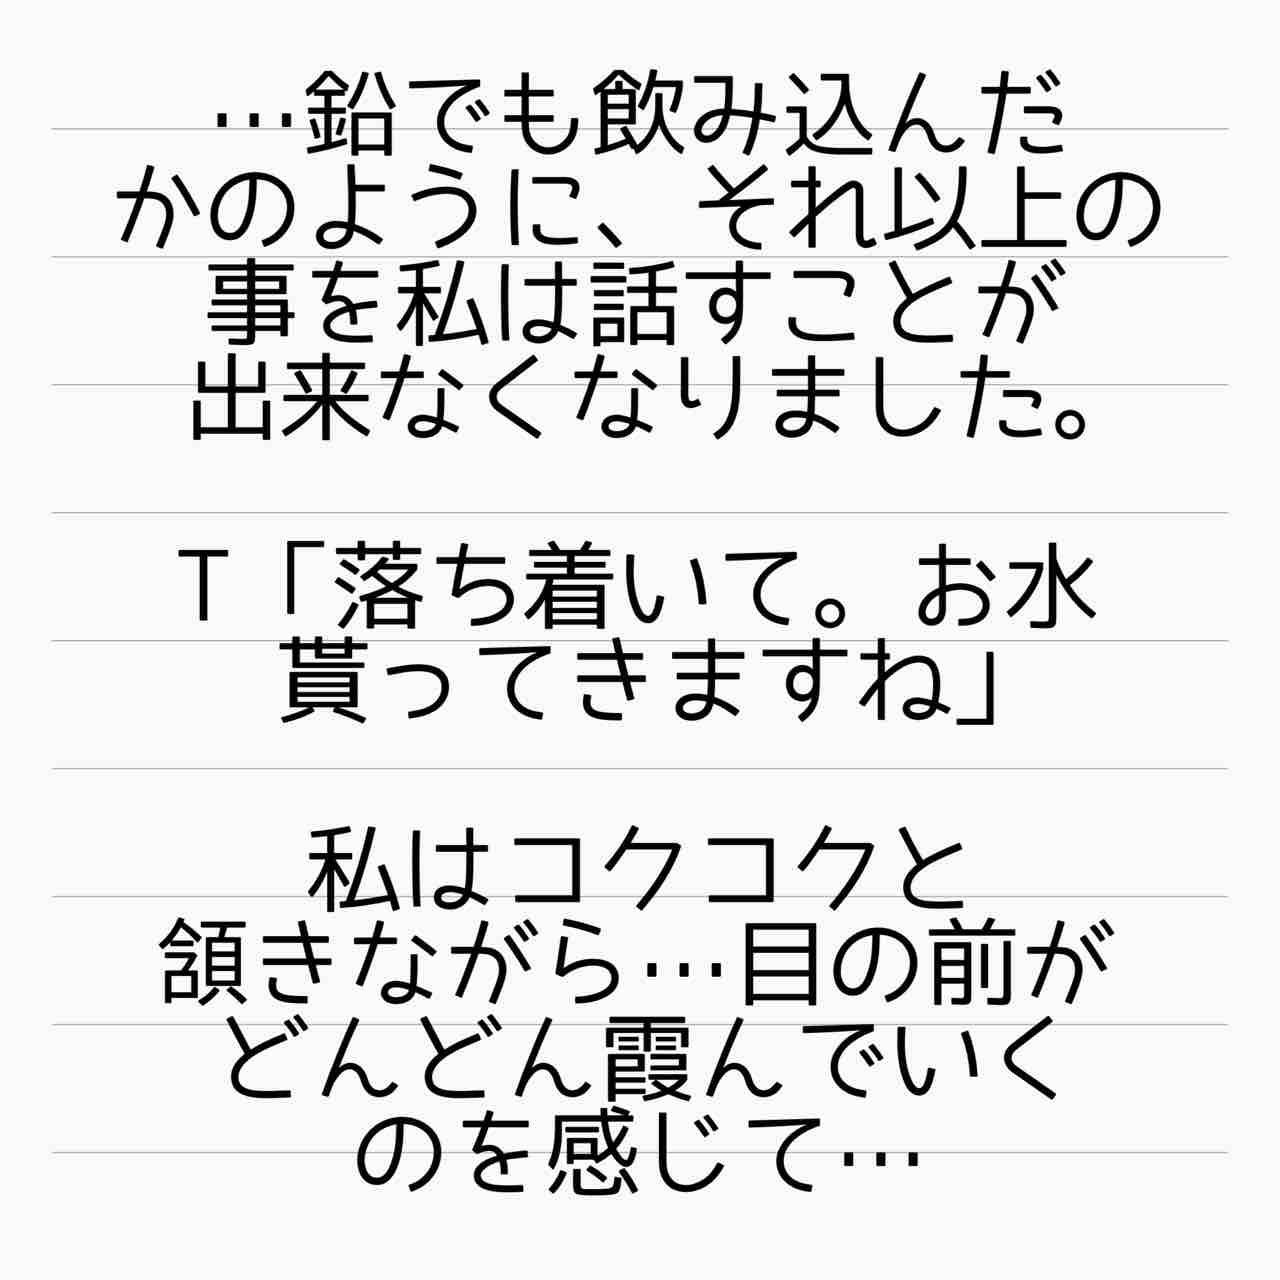 …鉛でも飲み込んだ
かのように、それ以上の
事を私は話すことが
出来なくなりました。
T「落ち着いて。お水
貰ってきますね」
私はコクコクと
頷きながら…目の前が
どんどん霞んでいく
のを感じて…